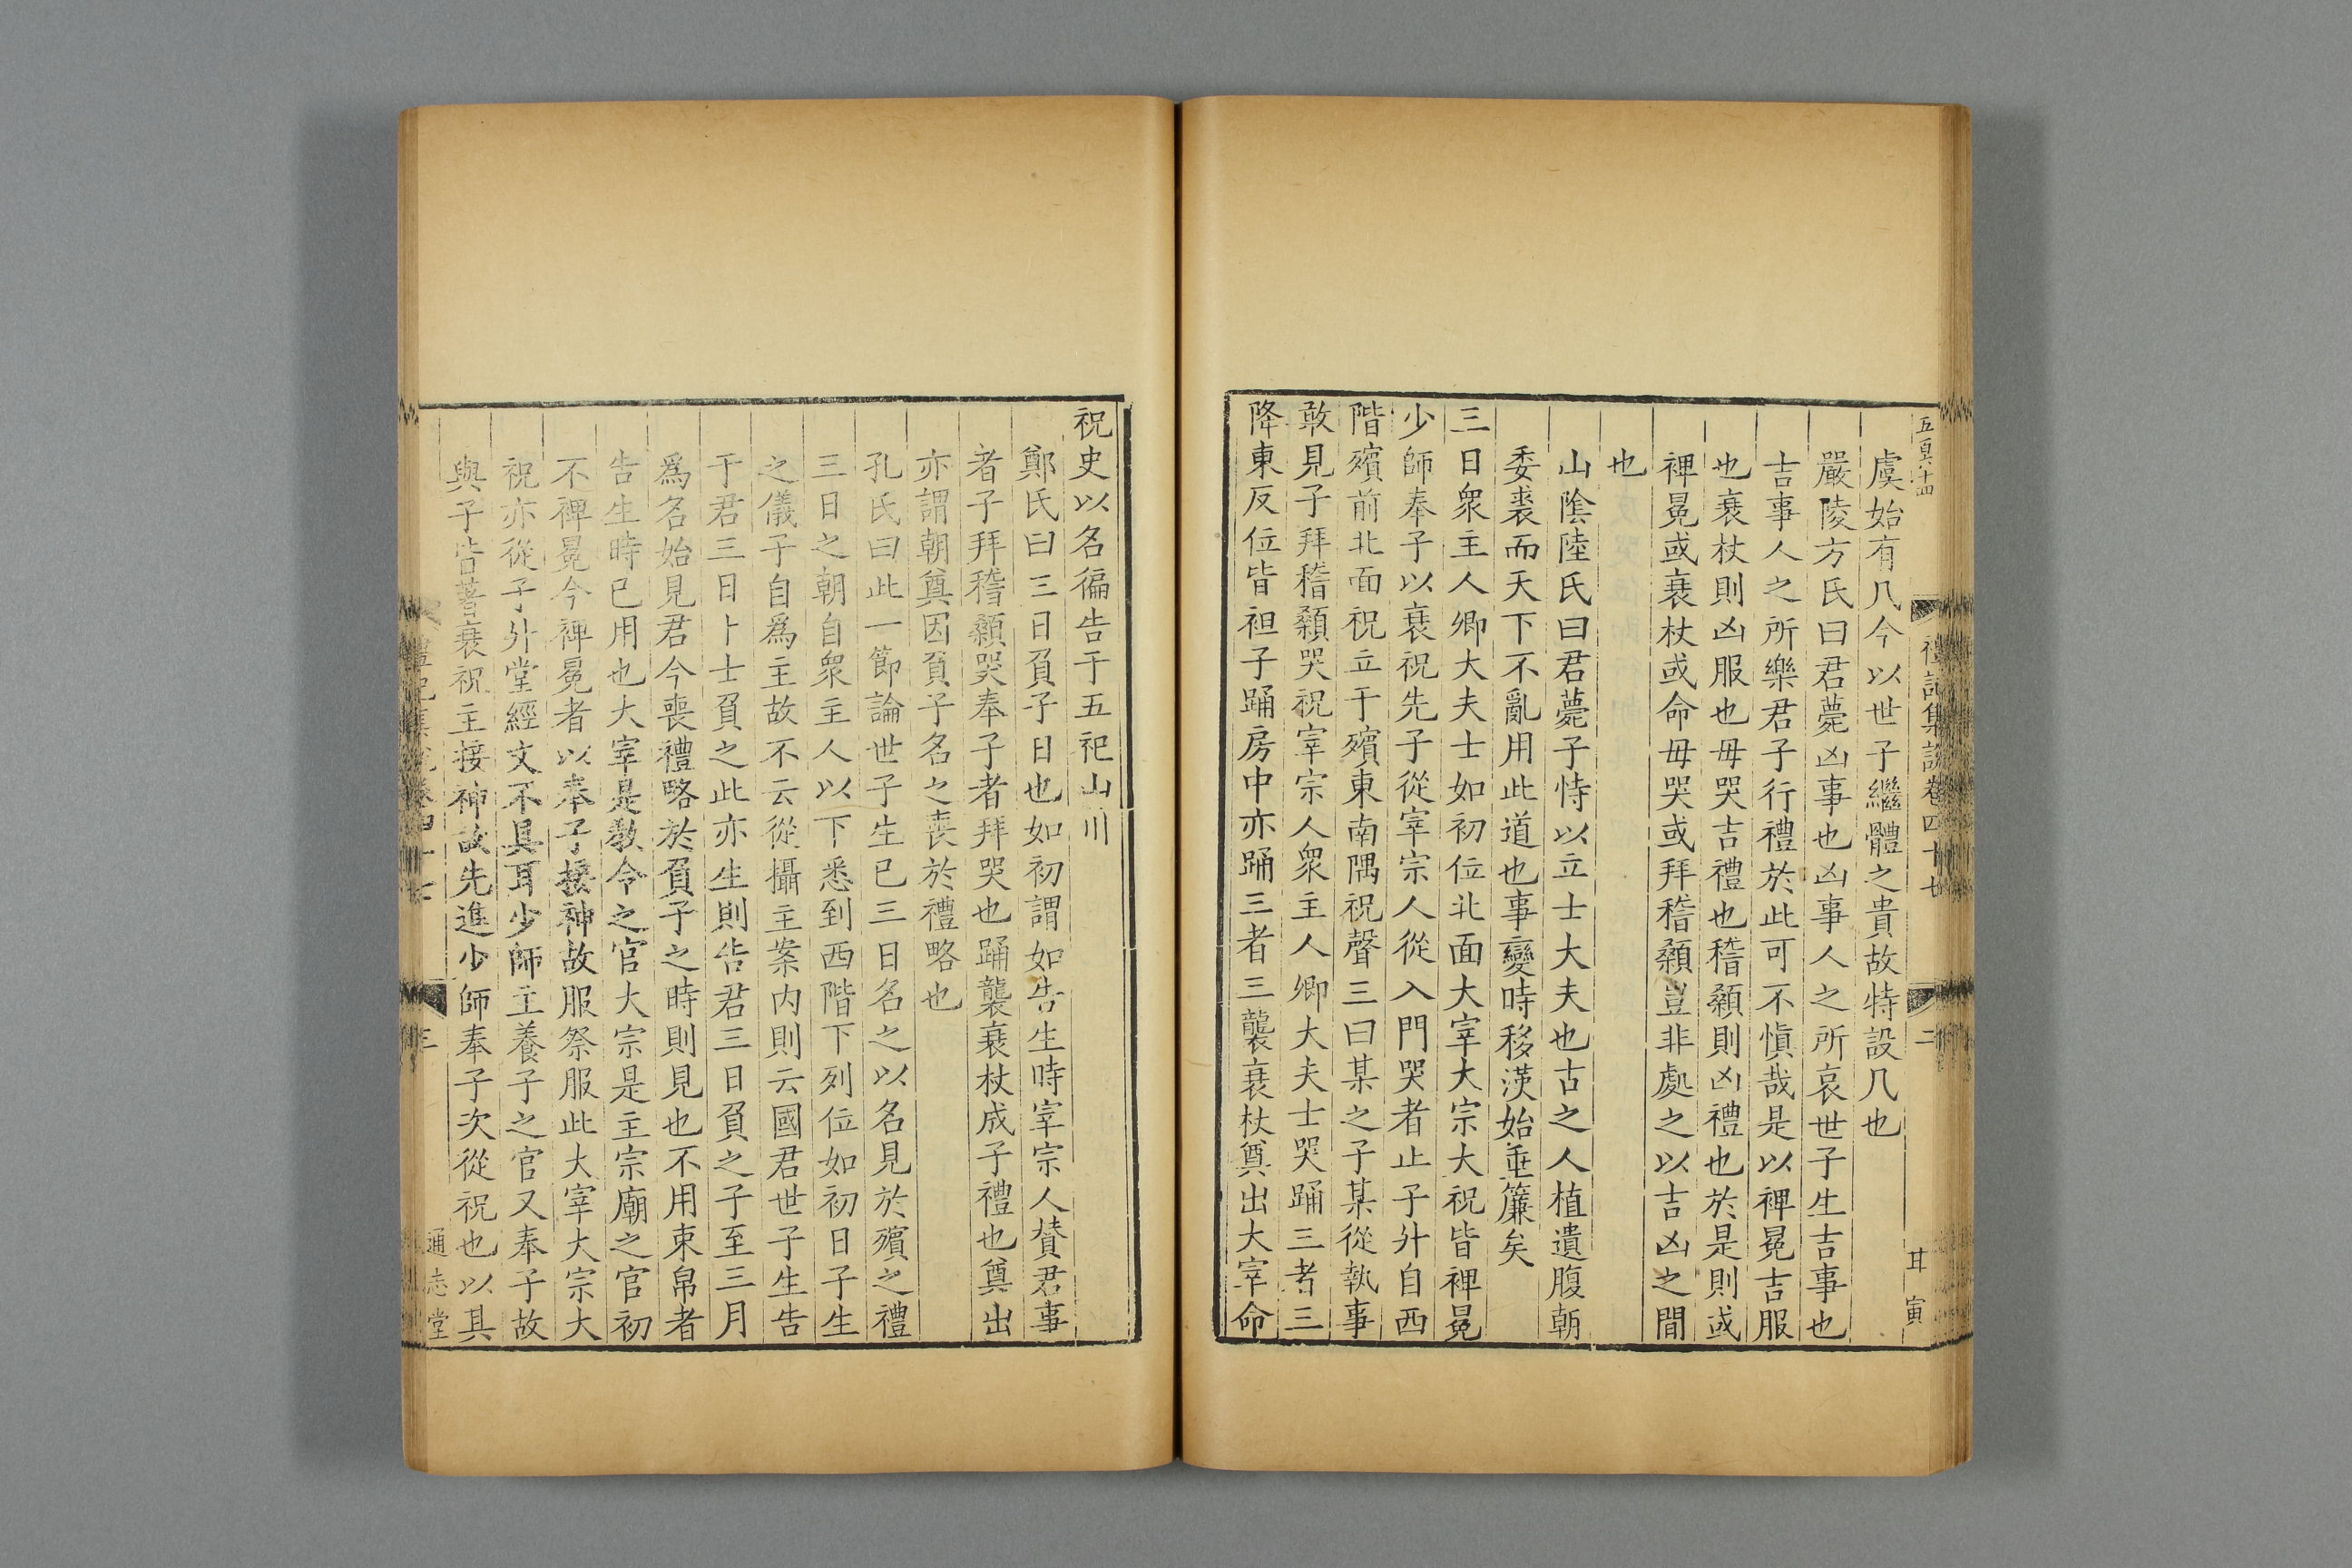 五百六十四
禮記集說卷四十七
二
甘寅
虞始有几今以世子繼體之貴故特設几也
嚴陵方氏曰君薨凶事也凶事人之所哀世子生吉事也
吉事人之所樂君子行禮於此可不慎哉是以裨冕吉服
也衰杖則凶服也毋哭吉禮也稽顙則凶禮也於是則或
裨冕或衰杖或命毋哭或拜稽顙豈非處之以吉凶之間
也
山隂陸氏曰君薨子恃以立士大夫也古之人植遺腹朝
委裘而天下不亂用此道也事變時移漢始垂簾矣
三日衆主人卿大夫士如初位北面大宰大宗大祝皆裨冕
少師奉子以衰祝先子從宰宗人從入門哭者止子升自西
階殯前北面祝立于殯東南隅祝聲三曰某之子某從執事
敢見子拜稽顙哭祝宰宗人衆主人卿大夫士哭踊三者三
降東反位皆袒子踊房中亦踊三者三襲衰杖奠出大宰命
祝史以名徧告于五祀山川
鄭氏曰三日負子日也如初謂如告生時宰宗人贊君事
者子拜稽顙哭奉子者拜哭也踊襲衰杖成子禮也奠出
亦謂朝奠因負子名之喪於禮略也
孔氏曰此一節論世子生已三日名之以名見於殯之禮
三日之朝自衆主人以下悉到西階下列位如初日子生
之儀子自爲主故不云從攝主案内則云國君世子生告
于君三日卜士負之此亦生則告君三日負之子至三月
爲名始見君今喪禮略於負子之時則見也不用束帛者
告生時已用也大宰是教令之官大宗是主宗廟之官初
不裨冕今裨冕者以奉子接神故服祭服此大宰大宗大
祝亦從子升堂經文不具耳少師主養子之官又奉子故
與子皆著衰祝主接神故先進少師奉子次從祝也以其
禮記集說卷四十七
三
通志堂